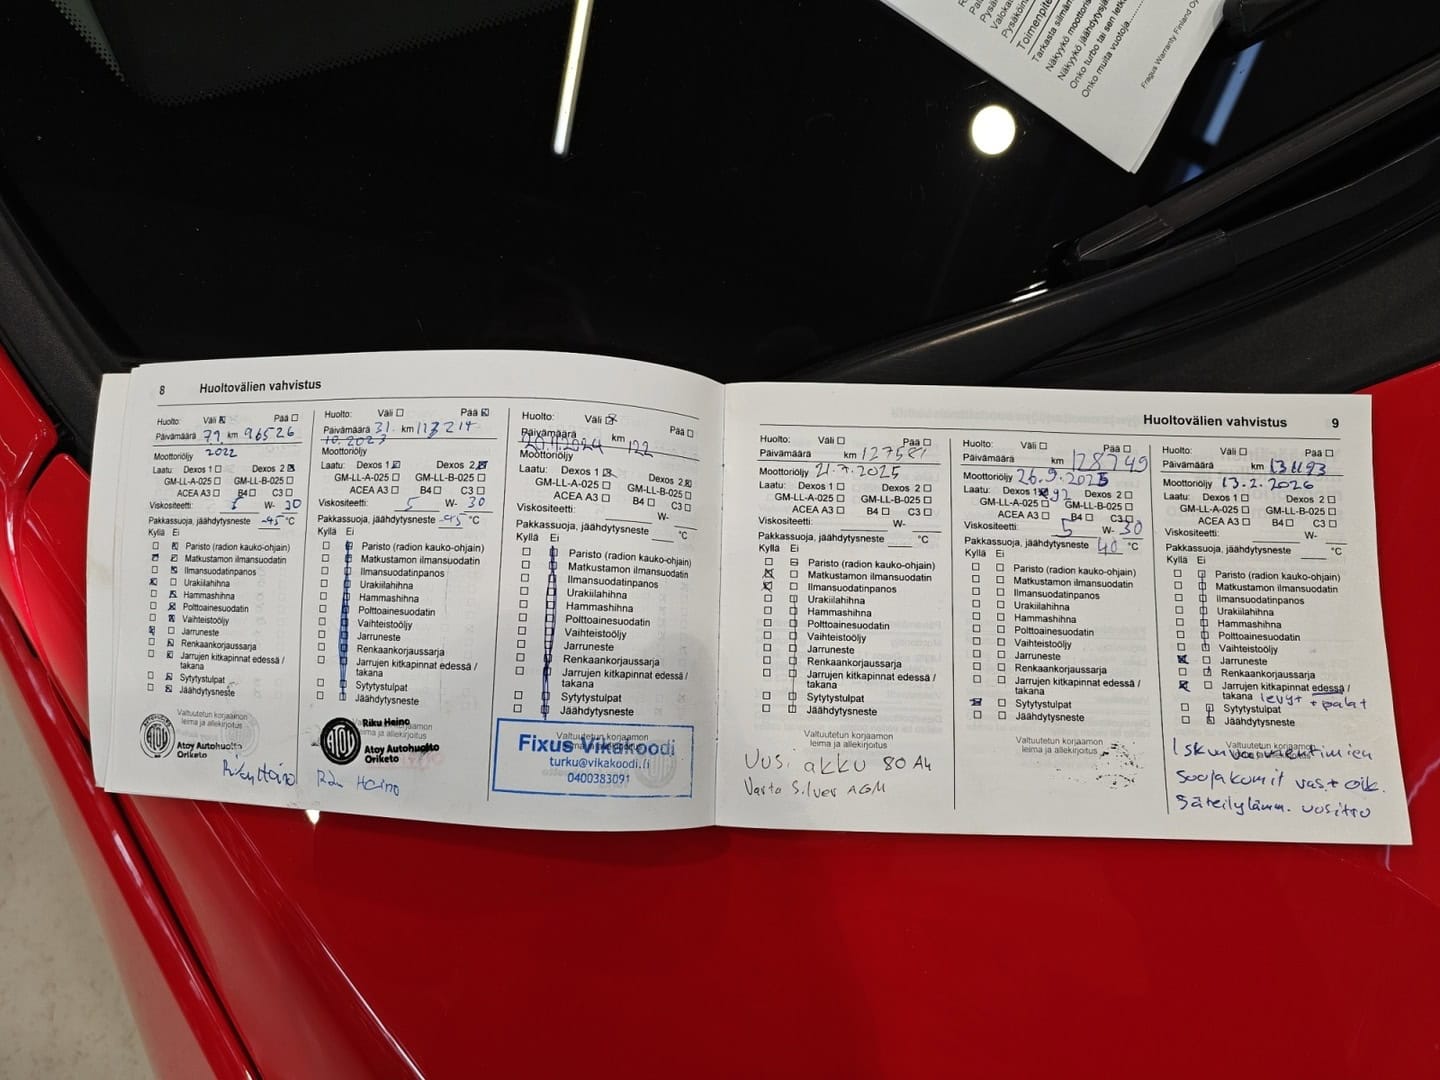 Toimenpite
Tarkasta silmäm
Näkyykö moottoris
Näkyykö jäähdytysjä
Onko turbo tai sen letk
Onko muita vuotoja
Fragus Warranty Finland Oy
8 Huoltovälien vahvistus
Huolto: Väli Pää
Päivämäärä km 96526
2022
Moottoriöljy
Laatu: Dexos 1 Dexos 2
GM-LL-A-025 GM-LL-B-025
ACEA A3 B4 C3
Viskositeetti: 5 W- 30
Pakkassuoja, jäähdytysneste -45 °C
Kyllä Ei
Paristo (radion kauko-ohjain)
Matkustamon ilmansuodatin
Ilmansuodatinpanos
Urakiilahihna
Hammashihna
Polttoainesuodatin
Vaihteistoöljy
Jarruneste
Renkaankorjaussarja
Jarrujen kitkapinnat edessä /
takana
Sytytystulpat
Jäähdytysneste
Valtuutetun korjaamon
leima ja allekirjoitus
Atoy Autohuolto
Oriketo
Huolto: Väli Pää
Päivämäärä 31. km 113214
10.2023
Moottoriöljy
Laatu: Dexos 1 Dexos 2
GM-LL-A-025 GM-LL-B-025
ACEA A3 B4 C3
Viskositeetti: 5 W- 30
Pakkassuoja, jäähdytysneste -45 °C
Kyllä Ei
Paristo (radion kauko-ohjain)
Matkustamon ilmansuodatin
Ilmansuodatinpanos
Urakiilahihna
Hammashihna
Polttoainesuodatin
Vaihteistoöljy
Jarruneste
Renkaankorjaussarja
Jarrujen kitkapinnat edessä /
takana
Sytytystulpat
Jäähdytysneste
Riku Heino
Atoy Autohuolto
Oriketo
Riku Heino
Huolto: Väli Pää
Päivämäärä km 122
20.11.2024
Moottoriöljy
Laatu: Dexos 1 Dexos 2
GM-LL-A-025 GM-LL-B-025
ACEA A3 B4 C3
Viskositeetti: W-
Pakkassuoja, jäähdytysneste °C
Kyllä Ei
Paristo (radion kauko-ohjain)
Matkustamon ilmansuodatin
Ilmansuodatinpanos
Urakiilahihna
Hammashihna
Polttoainesuodatin
Vaihteistoöljy
Jarruneste
Renkaankorjaussarja
Jarrujen kitkapinnat edessä /
takana
Sytytystulpat
Jäähdytysneste
Fixus Vikakoodi
turku@vikakoodi.fi
0400383091
Huoltovälien vahvistus 9
Huolto: Väli Pää
Päivämäärä km
Moottoriöljy 21.7.2025
Laatu: Dexos 1 Dexos 2
GM-LL-A-025 GM-LL-B-025
ACEA A3 B4 C3
Viskositeetti: W-
Pakkassuoja, jäähdytysneste °C
Kyllä Ei
Paristo (radion kauko-ohjain)
Matkustamon ilmansuodatin
Ilmansuodatinpanos
Urakiilahihna
Hammashihna
Polttoainesuodatin
Vaihteistoöljy
Jarruneste
Renkaankorjaussarja
Jarrujen kitkapinnat edessä /
takana
Sytytystulpat
Jäähdytysneste
Valtuutetun korjaamon
leima ja allekirjoitus
Uusi akku 80 Ah
Varta Silver AGM
Huolto: Väli Pää
Päivämäärä km 128749
Moottoriöljy 26.9.2025
Laatu: Dexos 1 Dexos 2
GM-LL-A-025 GM-LL-B-025
ACEA A3 B4 C3
Viskositeetti: 5 W- 30
Pakkassuoja, jäähdytysneste 40 °C
Kyllä Ei
Paristo (radion kauko-ohjain)
Matkustamon ilmansuodatin
Ilmansuodatinpanos
Urakiilahihna
Hammashihna
Polttoainesuodatin
Vaihteistoöljy
Jarruneste
Renkaankorjaussarja
Jarrujen kitkapinnat edessä /
takana
Sytytystulpat
Jäähdytysneste
Valtuutetun korjaamon
leima ja allekirjoitus
Huolto: Väli Pää
Päivämäärä km 131193
Moottoriöljy 13.2.2026
Laatu: Dexos 1 Dexos 2
GM-LL-A-025 GM-LL-B-025
ACEA A3 B4 C3
Viskositeetti: W-
Pakkassuoja, jäähdytysneste °C
Kyllä Ei
Paristo (radion kauko-ohjain)
Matkustamon ilmansuodatin
Ilmansuodatinpanos
Urakiilahihna
Hammashihna
Polttoainesuodatin
Vaihteistoöljy
Jarruneste
Renkaankorjaussarja
Jarrujen kitkapinnat edessä /
takana levyt + palat
Sytytystulpat
Jäähdytysneste
Iskunvaimentimien
suojakumit vas + oik.